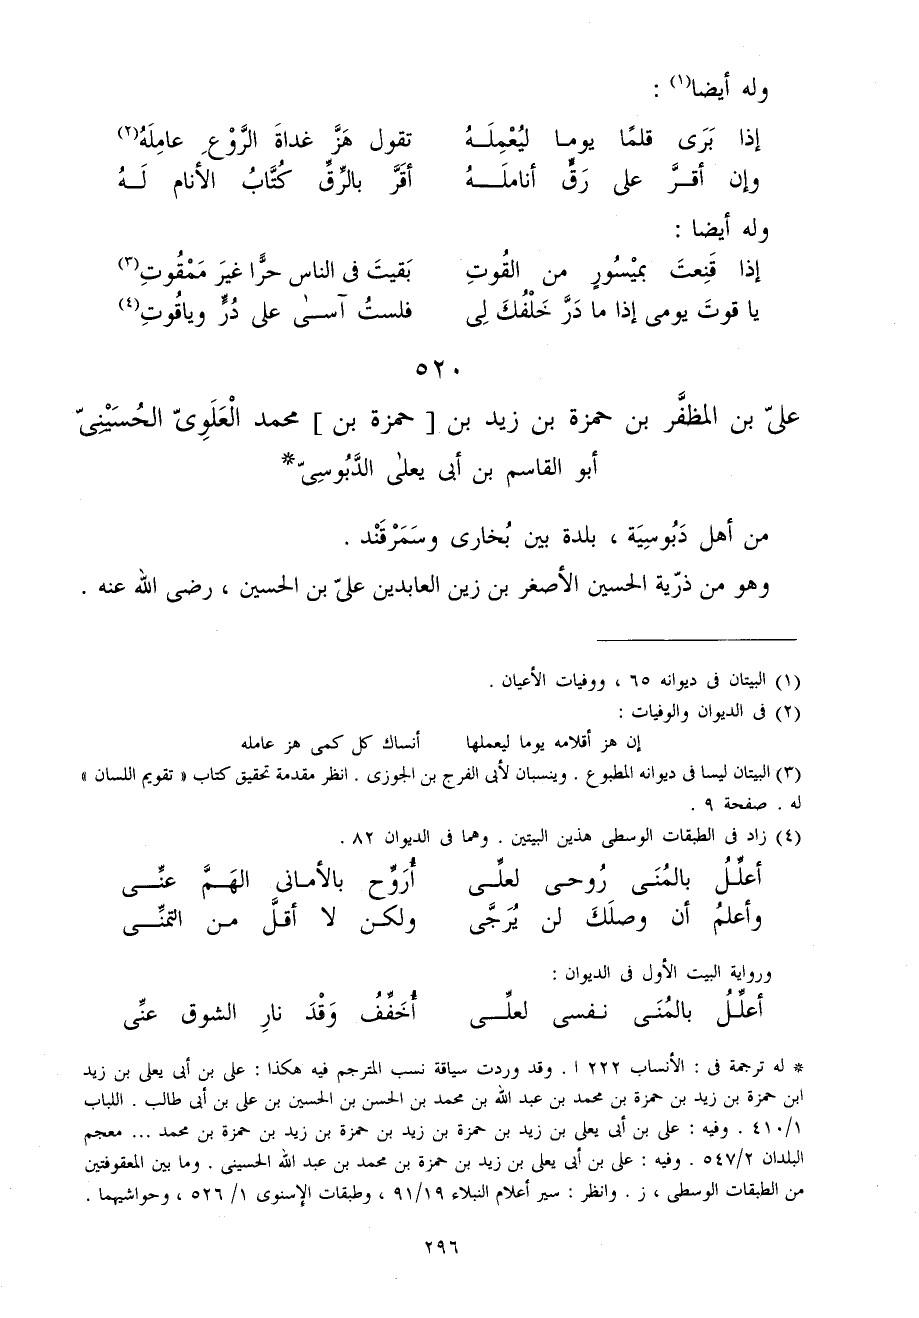 وله أيضا(١) :
إذا بَرَى قلمًا يوما ليُعْمِلَـهُ تقول هَزَّ غداةَ الرَّوْعِ عامِلَهُ(٢)
وإن أقـرَّ على رَقٍّ أناملَـــهُ أقَرَّ بالرِّقِّ كُتَّابُ الأنام لَـهُ
وله أيضا :
إذا قَنِعتَ بمَيْسُورٍ من القُوتِ بَقيتَ فى الناس حرًّا غيرَ مَمْقُوتِ(٣)
يا قوتَ يومى إذا ما دَرَّ خَلْفُكَ لِى فلستُ آسـىٰ على دُرٍّ وياقُوتِ(٤)
٥٢٠
علىّ بن المظفَّر بن حمزة بن زيد بن [ حمزة بن ] محمد الْعَلَوِىّ الحُسَيْنِىّ
أبو القاسم بن أبى يعلىٰ الدَّبُوسِىّ*
من أهل دَبُوسِيَة ، بلدة بين بُخارى وسَمَرْقَنْد .
وهو من ذرّية الحسين الأصغر بن زين العابدين علىّ بن الحسين ، رضى الله عنه .
(١) البيتان فى ديوانه ٦٥ ، ووفيات الأعيان .
(٢) فى الديوان والوفيات :
إن هز أقلامه يوما ليعملها أنساك كل كمى هز عامله
(٣) البيتان ليسا فى ديوانه المطبوع . وينسبان لأبى الفرج بن الجوزى . انظر مقدمة تحقيق كتاب « تقويم اللسان »
له . صفحة ٩ .
(٤) زاد فى الطبقات الوسطى هذين البيتين . وهما فى الديوان ٨٢ .
أعلِّـلُ بالمُنَـى رُوحـى لعلِّـى أُرَوِّح بالأمـانى الهَـمَّ عنِّـــى
وأعلمُ أن وصلَكَ لن يُرَجَّى ولكـن لا أقلَّ مـن التمنِّـــى
ورواية البيت الأول فى الديوان :
أعلِّـلُ بالمُنَـى نـفسى لعلِّــى أُخَفِّفُ وَقْدَ نارِ الشوق عنِّى
* له ترجمة فى : الأنساب ٢٢٢ ا . وقد وردت سياقة نسب المترجم فيه هكذا : على بن أبى يعلى بن زيد
ابن حمزة بن زيد بن حمزة بن محمد بن عبد الله بن محمد بن الحسن بن الحسين بن على بن أبى طالب . اللباب
٤١٠/١ . وفيه : على بن أبى يعلى بن زيد بن حمزة بن زيد بن حمزة بن زيد بن حمزة بن محمد ... معجم
البلدان ٥٤٧/٢ . وفيه : على بن أبى يعلى بن زيد بن حمزة بن محمد بن عبد الله الحسينى . وما بين المعقوفتين
من الطبقات الوسطى ، ز . وانظر : سير أعلام النبلاء ٩١/١٩ ، وطبقات الإسنوى ١/ ٥٢٦ ، وحواشيهما .
٢٩٦